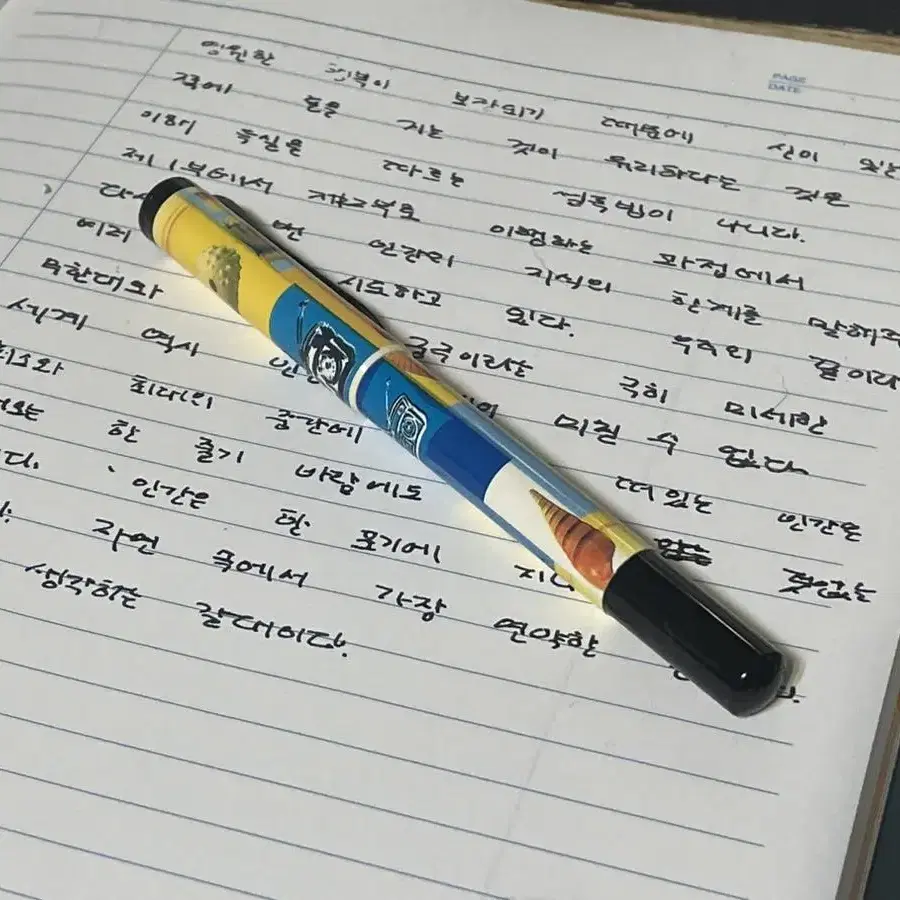 PAGE
DATE
영원한 행복이 보장되기 때문에 신이 있는
쪽에 돈을 거는 것이 유리하다는 것은
이해 득실을 따르는 설득법이 나니다.
제1부에서 제2부로 이행하는 과정에서
다시 번 인간의 지식의 한계를 말해주
려 시도하고 있다. 우주의 끝이라
무한대와 극이라는 극히 미세한
세계 역시 인간 미칠 수 없다.
최소와 최대의 중간에 떠 있는 인간은
하는 한 줄기 바람에도 덧없는
다. 인간은 한 포기에 지나
자연 속에서 가장 연약한
생각하는 갈대이다.